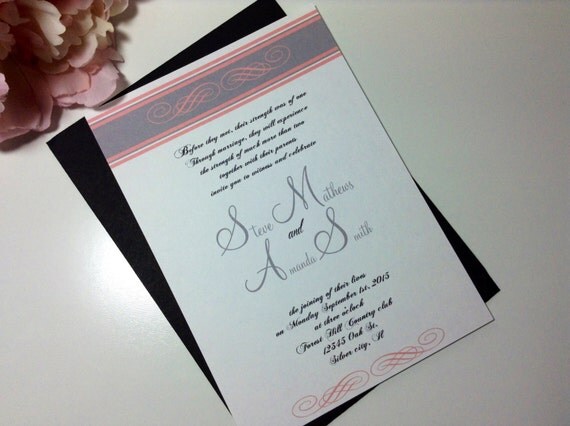 Before they met, their strength was of one
Through marriage, they will experience
the strength of much more than two
together with their parents
invite you to witness and celebrate
Steve Mathews
and
Amanda Smith
the joining of their lives
on Monday September 1st, 2015
at three o'clock
Forest Hill Country club
12545 Oak St.
Silver city,